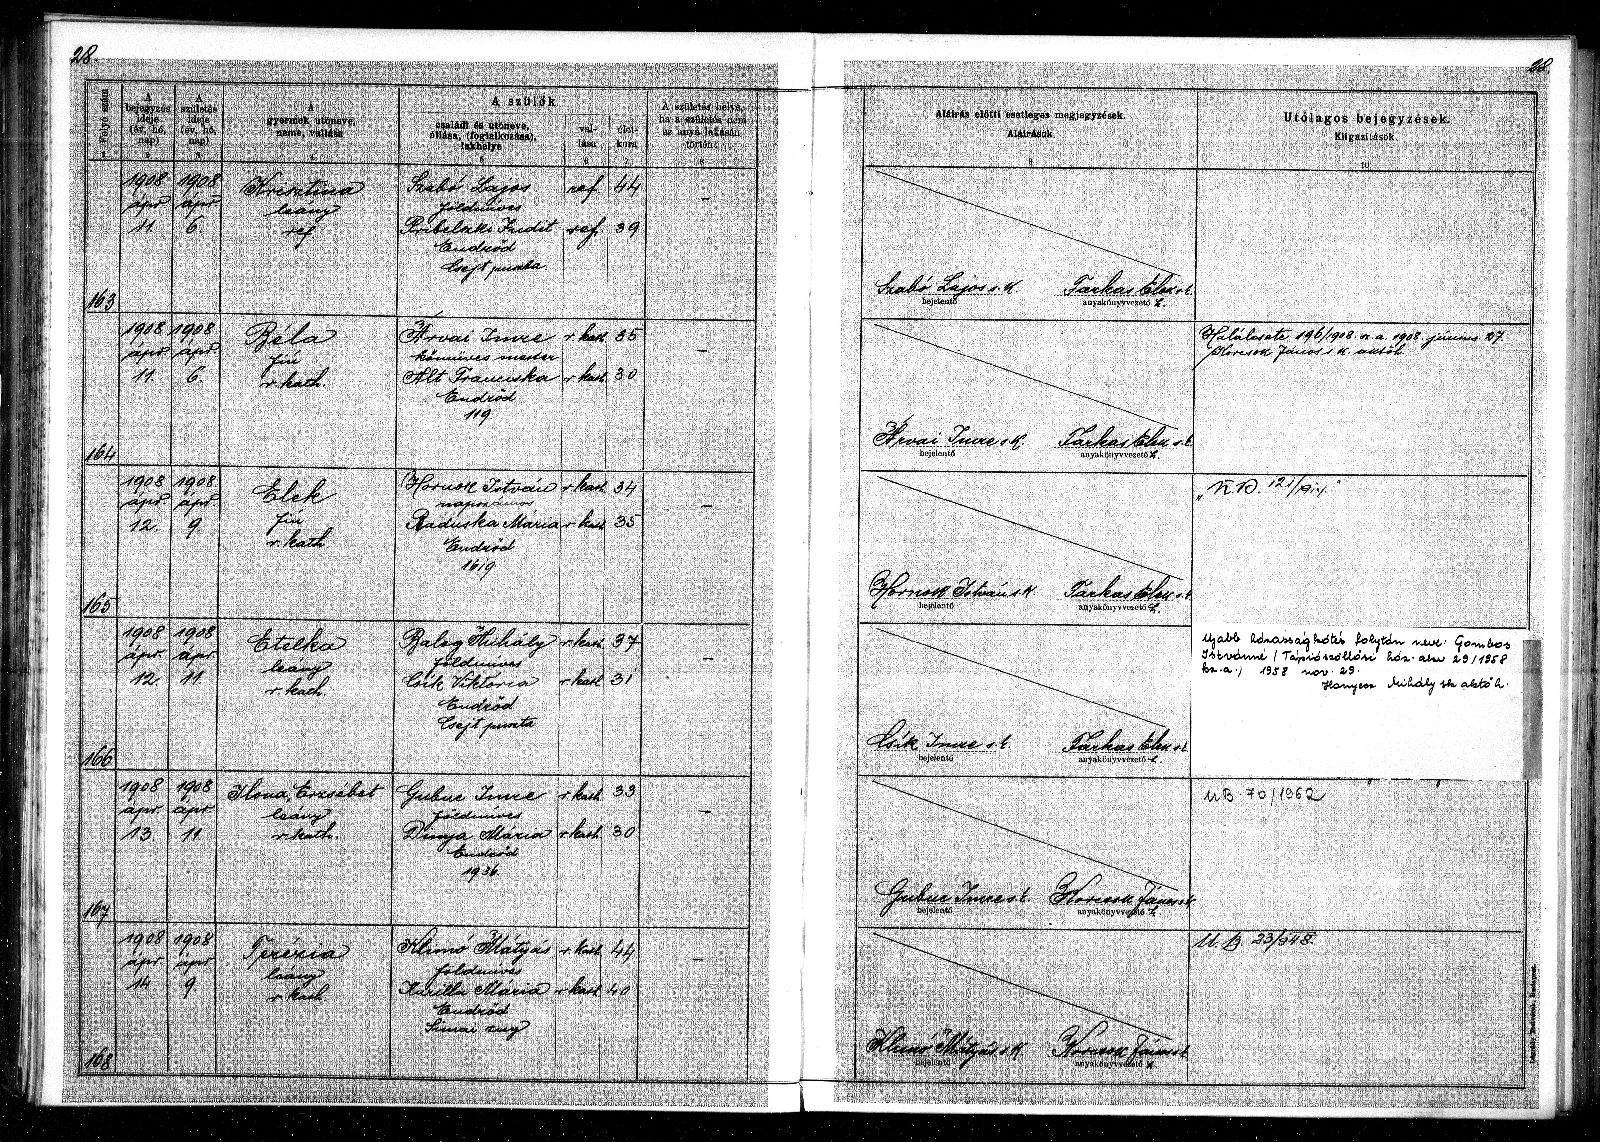 28.
28.
Folyó szám
A bejegyzés ideje (év, hó, nap)
A születés ideje (év, hó, nap)
A gyermek utóneve, neme, vallása
A szülők
családi és utóneve, állása, (foglalkozása), lakhelye
vallása
életkora
A születés helye, ha a születés nem az anya lakásán történt
Aláírás előtti esetleges megjegyzések.
Aláírások.
Utólagos bejegyzések.
Kiigazítások.
163
1908 ápr 11.
1908 ápr 6
Krisztina
leány
ref
Szabó Lajos ref 44
földmives
Pribelszki Judit ref. 39
Endrőd
Csejt puszta
–
Szabó Lajos s.k.
bejelentő
Farkas Elek s.k.
anyakönyvvezető h.
164
1908 ápr 11.
1908 ápr 6.
Béla
fiú
r. kath.
Árvai Imre r. kath 35
kőmives mester
Alt Franciska r. kath. 30
Endrőd
119
–
Árvai Imre s.k.
bejelentő
Farkas Elek s.k.
anyakönyvvezető h.
Halálesete 196/1908 sz. a. 1908. június 27.
Horcsok János s.k. aktóh.
165
1908 ápr. 12.
1908 ápr. 9.
Elek
fiú
r. kath
Hornok István r. kath 34
napszámos
Raduska Mária r. kath. 35
Endrőd
1619
–
Hornok István s.k.
bejelentő
Farkas Elek s.k.
anyakönyvvezető h.
166
1908 ápr. 12.
1908 ápr. 11.
Etelka
leány
r. kath.
Balog Mihály r. kath 37
földmives
Csik Viktória r. kath. 31
Endrőd
Csejt puszta
–
Csik Imre s.k.
bejelentő
Farkas Elek s.k.
anyakönyvvezető h.
Ujabb házasságkötés folytán neve: Gombos
Istvánné / Tápiószőllősi ház. akv 29/1958
sz. a., 1958 nov. 29.
Hanyecz Mihály sk aktóh.
167
1908 ápr. 13
1908 ápr. 11
Ilona, Erzsébet
leány
r. kath.
Gubuc Imre r. kath. 33
földmives
Dinya Mária r. kath. 30
Endrőd
1936.
–
Gubuc Imre s.k.
bejelentő
Horcsok János s.k.
anyakönyvvezető h.
UB 70/1962
168
1908 ápr. 14
1908 ápr. 9
Terézia
leány
r. kath
Klimó Mátyás r. kath. 44
földmives
Kurilla Mária r. kath. 40
Endrőd
Simai zug
–
Klimó Mátyás s.k.
bejelentő
Horcsok János s.k.
anyakönyvvezető h.
U. B. 23/948.